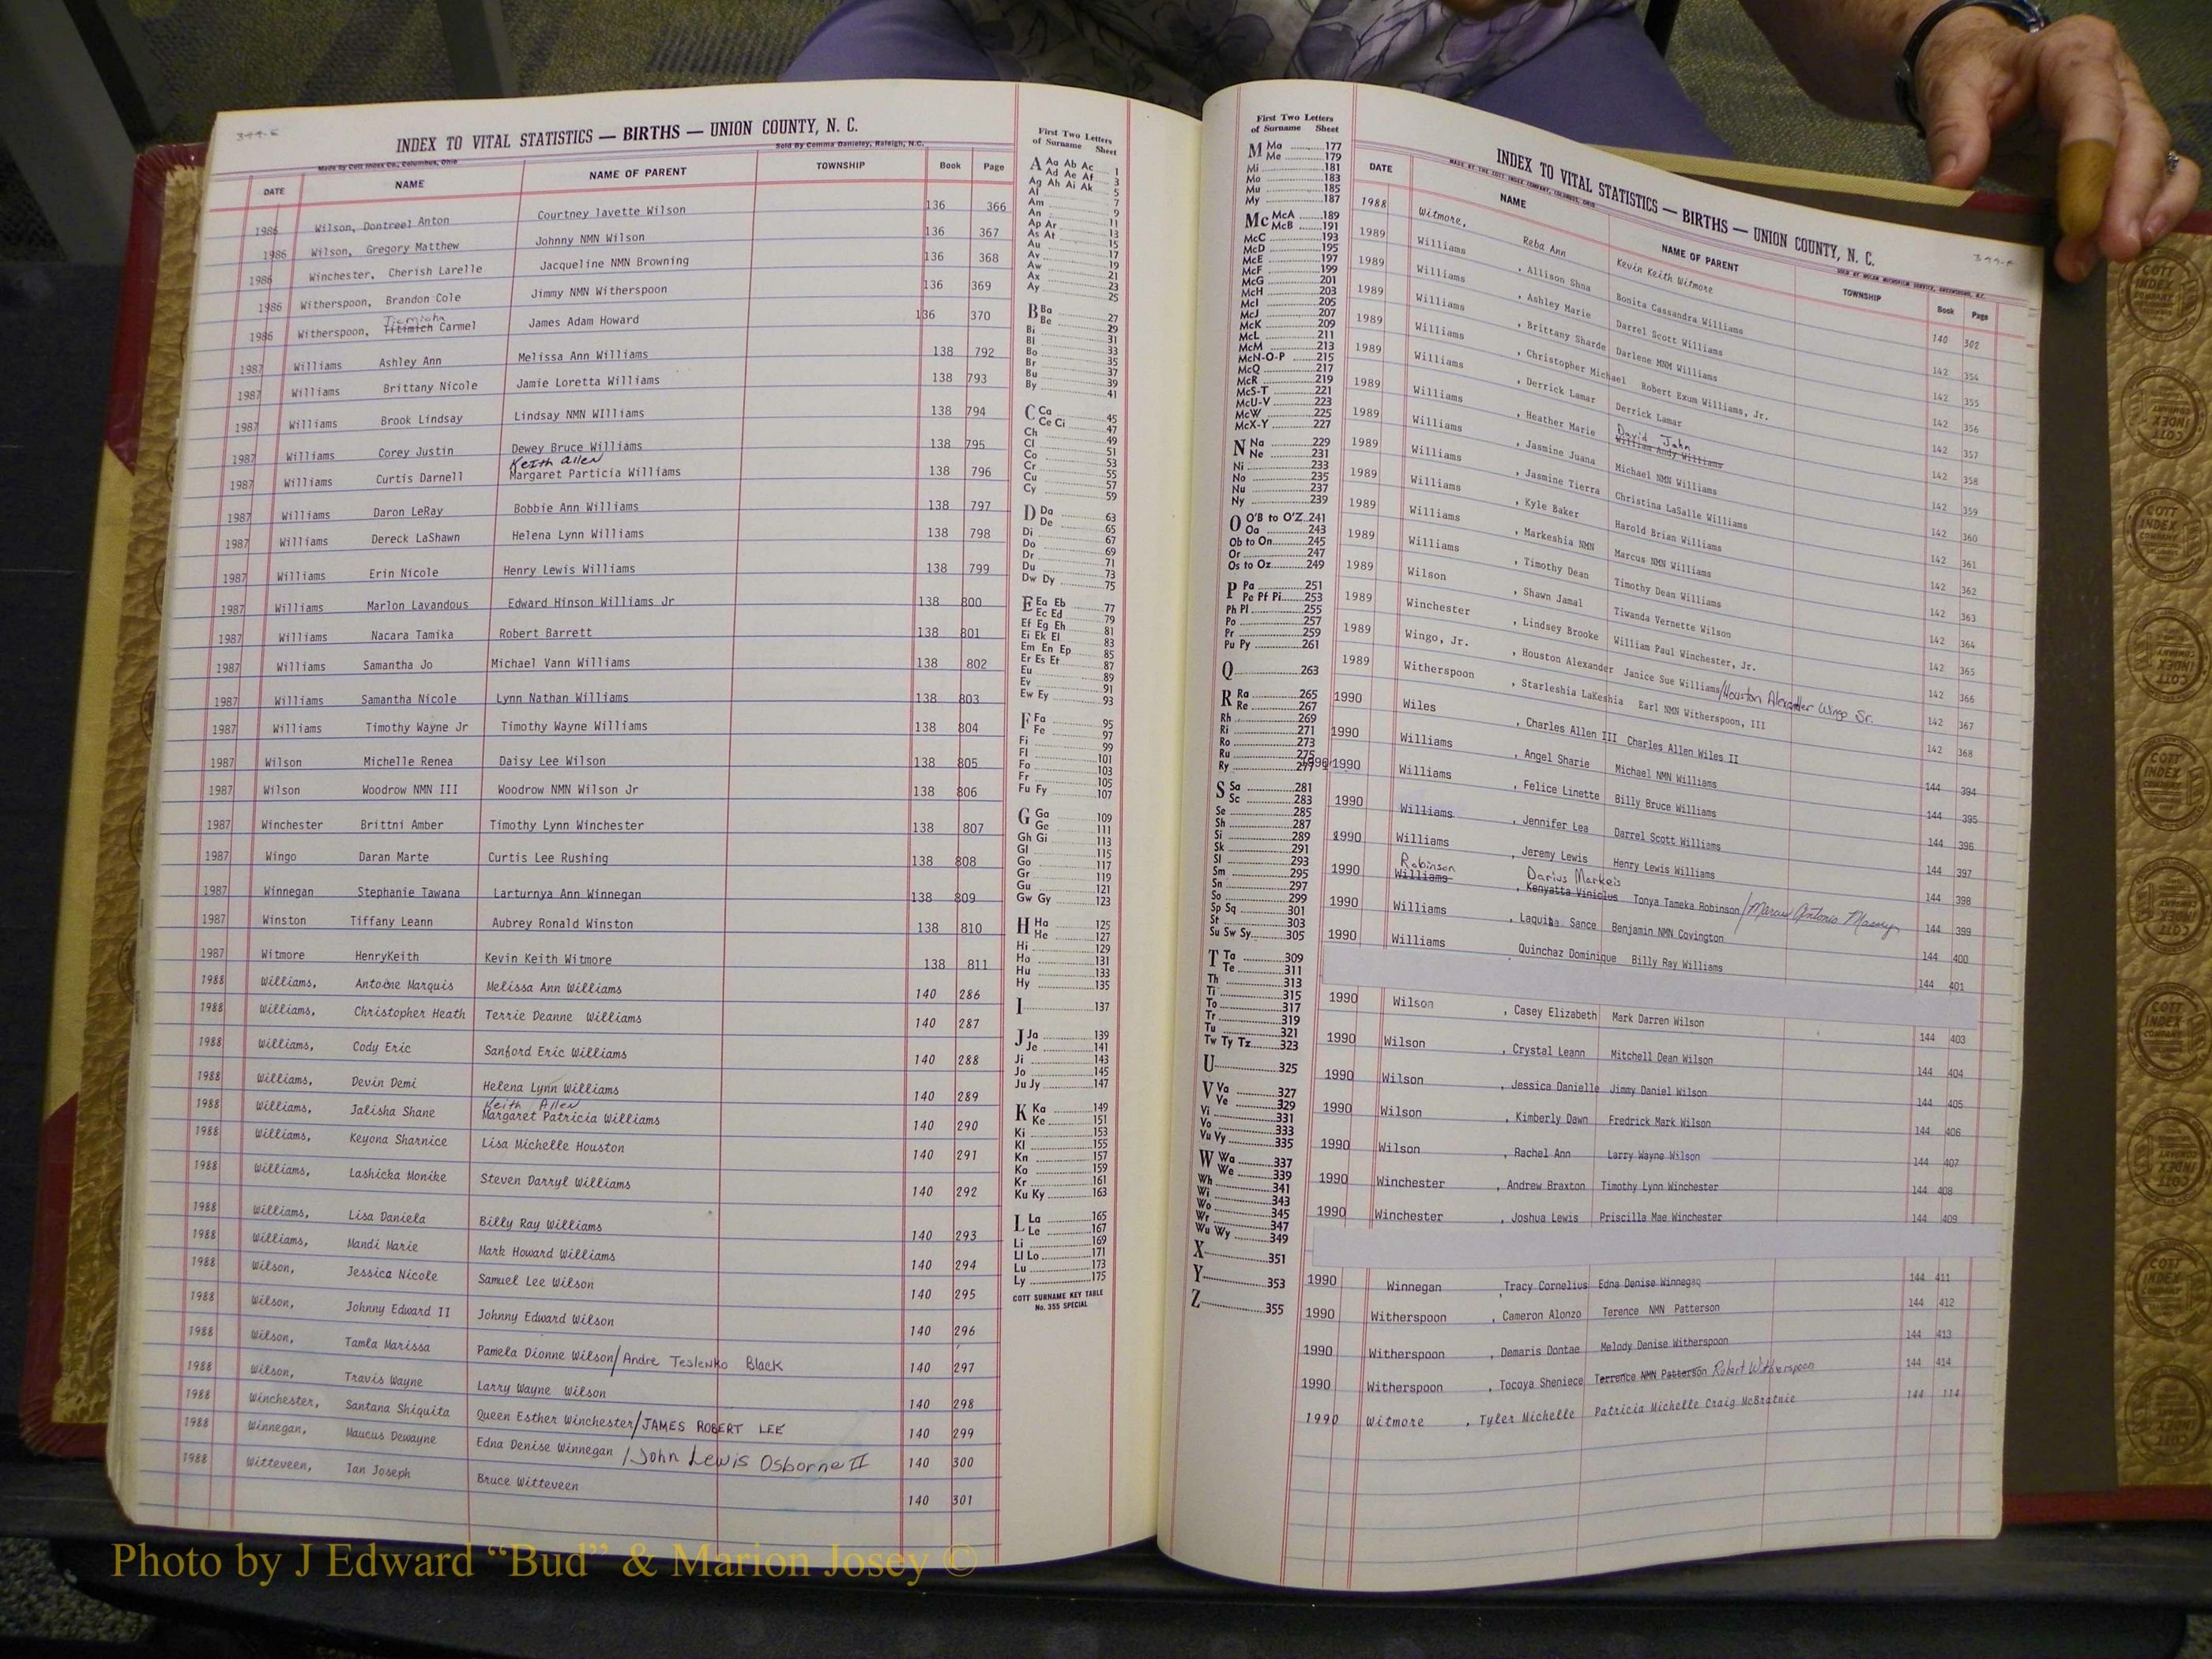 399-E
INDEX TO VITAL STATISTICS — BIRTHS — UNION COUNTY, N. C.
Made by Cott Index Co., Columbus, Ohio
Sold By Comma Danieley, Raleigh, N.C.
DATE NAME NAME OF PARENT TOWNSHIP Book Page
1986 Wilson, Dontreel Anton Courtney lavette Wilson 136 366
1986 Wilson, Gregory Matthew Johnny NMN Wilson 136 367
1986 Winchester, Cherish Larelle Jacqueline NMN Browning 136 368
1986 Witherspoon, Brandon Cole Jimmy NMN Witherspoon 136 369
1986 Witherspoon, Titimich Carmel James Adam Howard 136 370
1987 Williams Ashley Ann Melissa Ann Williams 138 792
1987 Williams Brittany Nicole Jamie Loretta Williams 138 793
1987 Williams Brook Lindsay Lindsay NMN WIlliams 138 794
1987 Williams Corey Justin Dewey Bruce Williams 138 795
Keith Allen
1987 Williams Curtis Darnell Margaret Particia Williams 138 796
1987 Williams Daron LeRay Bobbie Ann Williams 138 797
1987 Williams Dereck LaShawn Helena Lynn Williams 138 798
1987 Williams Erin Nicole Henry Lewis Williams 138 799
1987 Williams Marlon Lavandous Edward Hinson Williams Jr 138 800
1987 Williams Nacara Tamika Robert Barrett 138 801
1987 Williams Samantha Jo Michael Vann Williams 138 802
1987 Williams Samantha Nicole Lynn Nathan Williams 138 803
1987 Williams Timothy Wayne Jr Timothy Wayne Williams 138 804
1987 Wilson Michelle Renea Daisy Lee Wilson 138 805
1987 Wilson Woodrow NMN III Woodrow NMN Wilson Jr 138 806
1987 Winchester Brittni Amber Timothy Lynn Winchester 138 807
1987 Wingo Daran Marte Curtis Lee Rushing 138 808
1987 Winnegan Stephanie Tawana Larturnya Ann Winnegan 138 809
1987 Winston Tiffany Leann Aubrey Ronald Winston 138 810
1987 Witmore HenryKeith Kevin Keith Witmore 138 811
1988 Williams, Antoine Marquis Melissa Ann Williams 140 286
1988 Williams, Christopher Heath Terrie Deanne Williams 140 287
1988 Williams, Cody Eric Sanford Eric Williams 140 288
1988 Williams, Devin Demi Helena Lynn Williams 140 289
Keith Allen
1988 Williams, Jalisha Shane Margaret Patricia Williams 140 290
1988 Williams, Keyona Sharnice Lisa Michelle Houston 140 291
1988 Williams, Lashicka Monike Steven Darryl Williams 140 292
1988 Williams, Lisa Daniela Billy Ray Williams 140 293
1988 Williams, Mandi Marie Mark Howard Williams 140 294
1988 Wilson, Jessica Nicole Samuel Lee Wilson 140 295
1988 Wilson, Johnny Edward II Johnny Edward Wilson 140 296
1988 Wilson, Tamla Marissa Pamela Dionne Wilson/Andre Teslenko Black 140 297
1988 Wilson, Travis Wayne Larry Wayne Wilson 140 298
1988 Winchester, Santana Shiquita Queen Esther Winchester/JAMES ROBERT LEE 140 299
1988 Winnegan, Maucus Dewayne Edna Denise Winnegan /John Lewis Osborne II 140 300
1988 Witteveen, Ian Joseph Bruce Witteveen 140 301
First Two Letters
of Surname Sheet
A Aa Ab Ac 1
Ad Ae Af 3
Ag Ah Ai Ak 5
Al 7
Am 9
An 11
Ap Ar 13
As At 15
Au 17
Av 19
Aw 21
Ax 23
Ay 25
B Ba 27
Be 29
Bi 31
Bl 33
Bo 35
Br 37
Bu 39
By 41
C Ca 45
Ce Ci 47
Ch 49
Cl 51
Co 53
Cr 55
Cu 57
Cy 59
D Da 63
De 65
Di 67
Do 69
Dr 71
Du 73
Dw Dy 75
E Ea Eb 77
Ec Ed 79
Ef Eg Eh 81
Ei Ek El 83
Em En Ep 85
Er Es Et 87
Eu 89
Ev 91
Ew Ey 93
F Fa 95
Fe 97
Fi 99
Fl 101
Fo 103
Fr 105
Fu Fy 107
G Ga 109
Ge 111
Gh Gi 113
Gl 115
Go 117
Gr 119
Gu 121
Gw Gy 123
H Ha 125
He 127
Hi 129
Ho 131
Hu 133
Hy 135
I 137
J Ja 139
Je 141
Ji 143
Jo 145
Ju Jy 147
K Ka 149
Ke 151
Ki 153
Kl 155
Kn 157
Ko 159
Kr 161
Ku Ky 163
L La 165
Le 167
Li 169
Ll Lo 171
Lu 173
Ly 175
COTT SURNAME KEY TABLE
No. 355 SPECIAL
First Two Letters
of Surname Sheet
M Ma 177
Me 179
Mi 181
Mo 183
Mu 185
My 187
Mc McA 189
McB 191
McC 193
McD 195
McE 197
McF 199
McG 201
McH 203
McI 205
McJ 207
McK 209
McL 211
McM 213
McN-O-P 215
McQ 217
McR 219
McS-T 221
McU-V 223
McW 225
McX-Y 227
N Na 229
Ne 231
Ni 233
No 235
Nu 237
Ny 239
O O'B to O'Z 241
Oa 243
Ob to On 245
Or 247
Os to Oz 249
P Pa 251
Pe Pf Pi 253
Ph Pl 255
Po 257
Pr 259
Pu Py 261
Q 263
R Ra 265
Re 267
Rh 269
Ri 271
Ro 273
Ru 275
Ry 277
S Sa 281
Sc 283
Se 285
Sh 287
Si 289
Sk 291
Sl 293
Sm 295
Sn 297
So 299
Sp Sq 301
St 303
Su Sw Sy 305
T Ta 309
Te 311
Th 313
Ti 315
To 317
Tr 319
Tu 321
Tw Ty Tz 323
U 325
V Va 327
Ve 329
Vi 331
Vo 333
Vu Vy 335
W Wa 337
We 339
Wh 341
Wi 343
Wo 345
Wr 347
Wu Wy 349
X 351
Y 353
Z 355
INDEX TO VITAL STATISTICS — BIRTHS — UNION COUNTY, N. C.
399-F
MADE BY THE COTT INDEX COMPANY, COLUMBUS, OHIO
DATE NAME NAME OF PARENT TOWNSHIP Book Page
1988 Witmore, Reba Ann Kevin Keith Witmore 140 302
1989 Williams , Allison Shna Bonita Cassandra Williams 142 354
1989 Williams , Ashley Marie Darrel Scott Williams 142 355
1989 Williams , Brittany Sharde Darlene NMN Williams 142 356
1989 Williams , Christopher Michael Robert Exum Williams, Jr. 142 357
1989 Williams , Derrick Lamar Derrick Lamar 142 358
David John
1989 Williams , Heather Marie William Andy Williams 142 359
1989 Williams , Jasmine Juana Michael NMN Williams 142 360
1989 Williams , Jasmine Tierra Christina LaSalle Williams 142 361
1989 Williams , Kyle Baker Harold Brian Williams 142 362
1989 Williams , Markeshia NMN Marcus NMN Williams 142 363
1989 Williams , Timothy Dean Timothy Dean Williams 142 364
1989 Wilson , Shawn Jamal Tiwanda Vernette Wilson 142 365
1989 Winchester , Lindsey Brooke William Paul Winchester, Jr. 142 366
1989 Wingo, Jr. , Houston Alexander Janice Sue Williams/Houston Alexander Wingo Sr. 142 367
1989 Witherspoon , Starleshia LaKeshia Earl NMN Witherspoon, III 142 368
1990 Wiles , Charles Allen III Charles Allen Wiles II 144 394
1990 Williams , Angel Sharie Michael NMN Williams 144 395
1990 Williams , Felice Linette Billy Bruce Williams 144 396
1990 Williams , Jennifer Lea Darrel Scott Williams 144 397
1990 Williams , Jeremy Lewis Henry Lewis Williams 144 398
Robinson Darius Markeis
1990 Williams , Kenyatta Vinicius Tonya Tameka Robinson/Marcus Antonio Massey 144 399
1990 Williams , Laquita Sance Benjamin NMN Covington 144 400
1990 Williams , Quinchaz Dominique Billy Ray Williams 144 401
1990 Wilson , Casey Elizabeth Mark Darren Wilson 144 403
1990 Wilson , Crystal Leann Mitchell Dean Wilson 144 404
1990 Wilson , Jessica Danielle Jimmy Daniel Wilson 144 405
1990 Wilson , Kimberly Dawn Fredrick Mark Wilson 144 406
1990 Wilson , Rachel Ann Larry Wayne Wilson 144 407
1990 Winchester , Andrew Braxton Timothy Lynn Winchester 144 408
1990 Winchester , Joshua Lewis Priscilla Mae Winchester 144 409
1990 Winnegan ,Tracy Cornelius Edna Denise Winnegan 144 411
1990 Witherspoon , Cameron Alonzo Terence NMN Patterson 144 412
1990 Witherspoon , Demaris Dontae Melody Denise Witherspoon 144 413
1990 Witherspoon , Tocoya Sheniece Terrence NMN Patterson Robert Witherspoon 144 414
1990 Witmore , Tyler Michelle Patricia Michelle Craig McBratnie 144 114
COTT INDEX COMPANY
Photo by J Edward “Bud” & Marion Josey ©